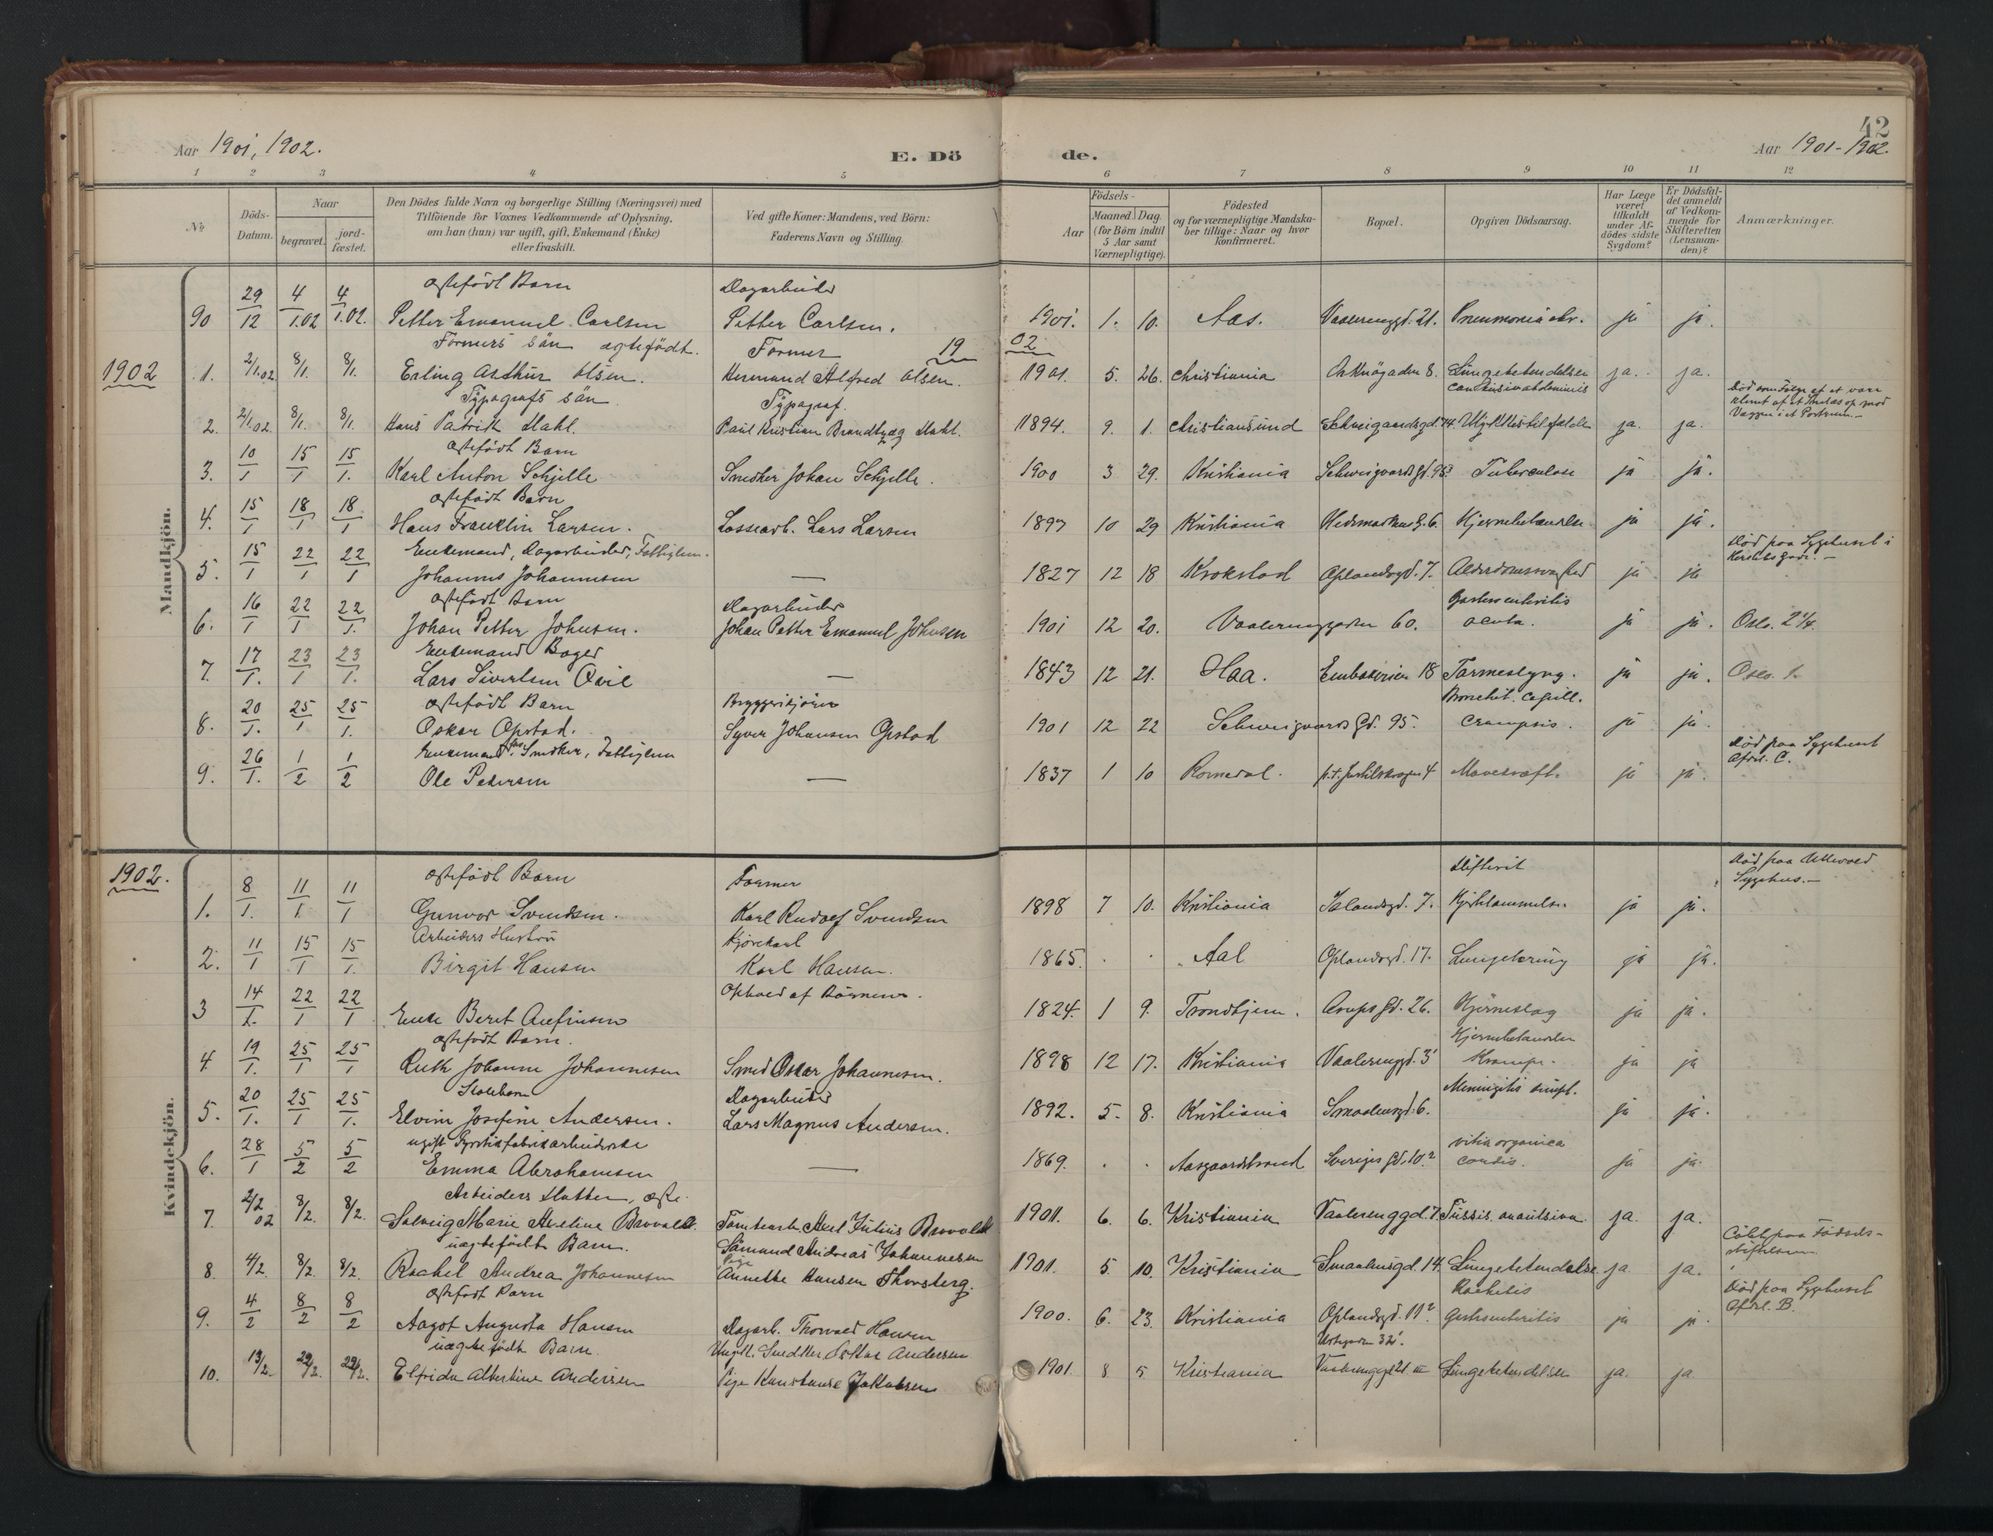 42
Aar 1901, 1902.
E. Dö
de.
Aar 1901-1902.
1 2 3 4 5 6 7 8 9 10 11 12
No
Döds-Datum.
Naar
begravet.
jord-fæstet.
Den Dödes fulde Navn og borgerlige Stilling (Næringsvei) med
Tilföiende for Voxnes Vedkommende af Oplysning,
om han (hun) var ugift, gift, Enkemand (Enke)
eller fraskilt.
Ved gifte Koner: Mandens, ved Börn:
Faderens Navn og Stilling.
Aar
Födsels-
Maaned Dag
(for Börn indtil
5 Aar samt
Værnepligtige).
Födested
og for værnepligtige Mandska-
ber tillige: Naar og hvor
konfirmeret.
Bopæl.
Opgiven Dödsaarsag.
Har Læge
været
tilkaldt
under Af-
dödes sidste
Sygdom?
Er Dödsfal-
det anmeldt
af Vedkom-
mende for
Skifteretten
(Lensman-
den)?
Anmærkninger.
Mandkjön.
ægtefödt Barn Dagarbeider
90 29/12 4/1.02 4/1.02. Petter Emanuel Carlsen Petter Carlsen. 1901. 1. 10. Aas. Vaalerenggd. 21. Pneumonia chr. ja ja.
Formers sön ægtefödt. Former 19 02
1902 1. 2/1.02 8/1. 8/1. Erling Arthur Olsen. Hermand Alfred Olsen. 1901. 5. 26. Christiania 8. Lungebetændelse ja. ja.
Typografs sön Typograf.
2. 2/1.02 8/1. 8/1. Hans Patrik Dahl. Paul Kristian Brandtzæg Dahl. 1894. 9. 1. Christiansund Schweigaardsgd. 74 Ulykkestilfælde ja. ja. Död som Fölge af at være klemt af et Lades op mod Væggen i et Portrum.-
ægtefödt Barn
3. 10/1 15/1 15/1. Karl Anton Schjelle Snedker Johan Schjelle. 1900 3 29. Kristiania Schweigaards Gd. 95 Tuberculose ja ja.
ægtefödt Barn
4. 15/1 18/1 18/1 Hans Franklin Larsen. Lossearb. Lars Larsen 1897 10 29 Kristiania Hedemarkens G. 6. Hjernebetændelse ja ja.
Enkemand, Dagarbeider, Fattiglem. Död paa Sygehuset i
5. 15/1 22/1 22/1 Johannes Johannesen — 1827 12 18 Krokstad Oplandsgd. 7. Alderdomssvaghed ja ja
ægtefödt Barn Dagarbeider Gastroenteritis
6. 16/1 22/1 22/1. Johan Petter Johnsen. Johan Petter Emanuel Johnsen 1901 12 20. Vaalerenggaden 60. acuta. ja ja. Oslo. 2/4.
Enkemand Bager
7. 17/1. 23/1 23/1. Lars Sivertsen Qvie — 1843 12 21. Haa. 18 Tarmeslyng. ja ja. Oslo 1.
ægtefödt Barn Bryggerikjörer Bronchit. Capill.
8. 20/1. 25/1 25/1. Oskar Opstad. Syver Johansen Opstad 1901 12 22 Schweigaards Gd. 95. Eclampsis. ja ja.
Enkemand, Snedker, Fattiglem Död paa Sygehuset
9. 26/1. 1/2 1/2 Ole Pedersen — 1837 1 10 Romedal. 4 Mavekræft. ja ja. Afdel. C.
Kvindekjön.
1902. ægtefödt Barn Former Difterit Död paa Ullevold Sygehus.-
1. 8/1. 11/1. 11/1 Gunvor Svendsen. Karl Rudolf Svendsen 1898 7 10. Kristiania Islandsgd. 7. Hjertelammelse ja ja.
Arbeiders Hustru Kjörekarl
2. 11/1 15/1 15/1. Birgit Hansen Karl Hansen. 1865. . . Aal Oplandsgd. 17. Lungetæring ja ja.
Ophold af Börnene.
3 14/1. 22/1 22/1 Enke Beret Arefinsen 1824. 1 9. Trondhjem. Arups Gd. 26. Hjerneslag ja ja.
ægtefödt Barn. Hjernebetændelse
4. 19/1. 25/1 25/1 Ruth Johanne Johannesen Smed Oskar Johannesen. 1898 12 17. Kristiania Vaalerenggd. 3 Krampe. ja ja
Skolebarn Dagarbeider Meningitis simpl.
5. 20/1. 25/1 25/1. Elvine Josefine Andersen. Lars Magnus Andersen. 1892. 5. 8. Kristiania Smedensgd. 6. ja ja.
ugift Fyrstikfabrikarbeiderske vitia organica
6. 28/1 5/2 5/2 Emma Abrahamsen — 1869. . . Aasgaardstrand Sveriges Gd. 10.2 cordis. ja ja.
Arbeiders Datter, ægte.
7. 2/2 02 8/2. 8/2. Solveig Marie Aveline Brovold. Tomtearb. Axel Julius Brovold 1901. 6. 6. Kristiania Vaalerenggd. 7. Tussis convulsiva ja. ja.
uægtefödt Barn. Sömand Andreas Johannesen Pige
8. 4/2. 8/2. 8/2. Rachel Andrea Johannesen Annette Hansen Thorsberg. 1901. 5. 10. Kristiania Smaalensgd. 14. Lungebetændelse ja ja. Födsels-stiftelsen
ægtefödt Barn Rachitis Död paa Sygehuset
9. 4/2 8/2 8/2 Aagot Augusta Hansen Dagarb. Thorvald Hansen 1900. 6. 23. Kristiania Oplandsgd. 11.2 Gastroenteritis ja ja Afdel. B.
uægtefödt Barn. Ungk. Snedker Oskar Andersen Urtegaden 32.
10. 13/2. 22/2. 22/2. Elfrida Albertine Andersen Pige Konstanse Jakobsen 1901. 8 5. Kristiania Vaalerenggd. 21 III Lungebetændelse ja. ja